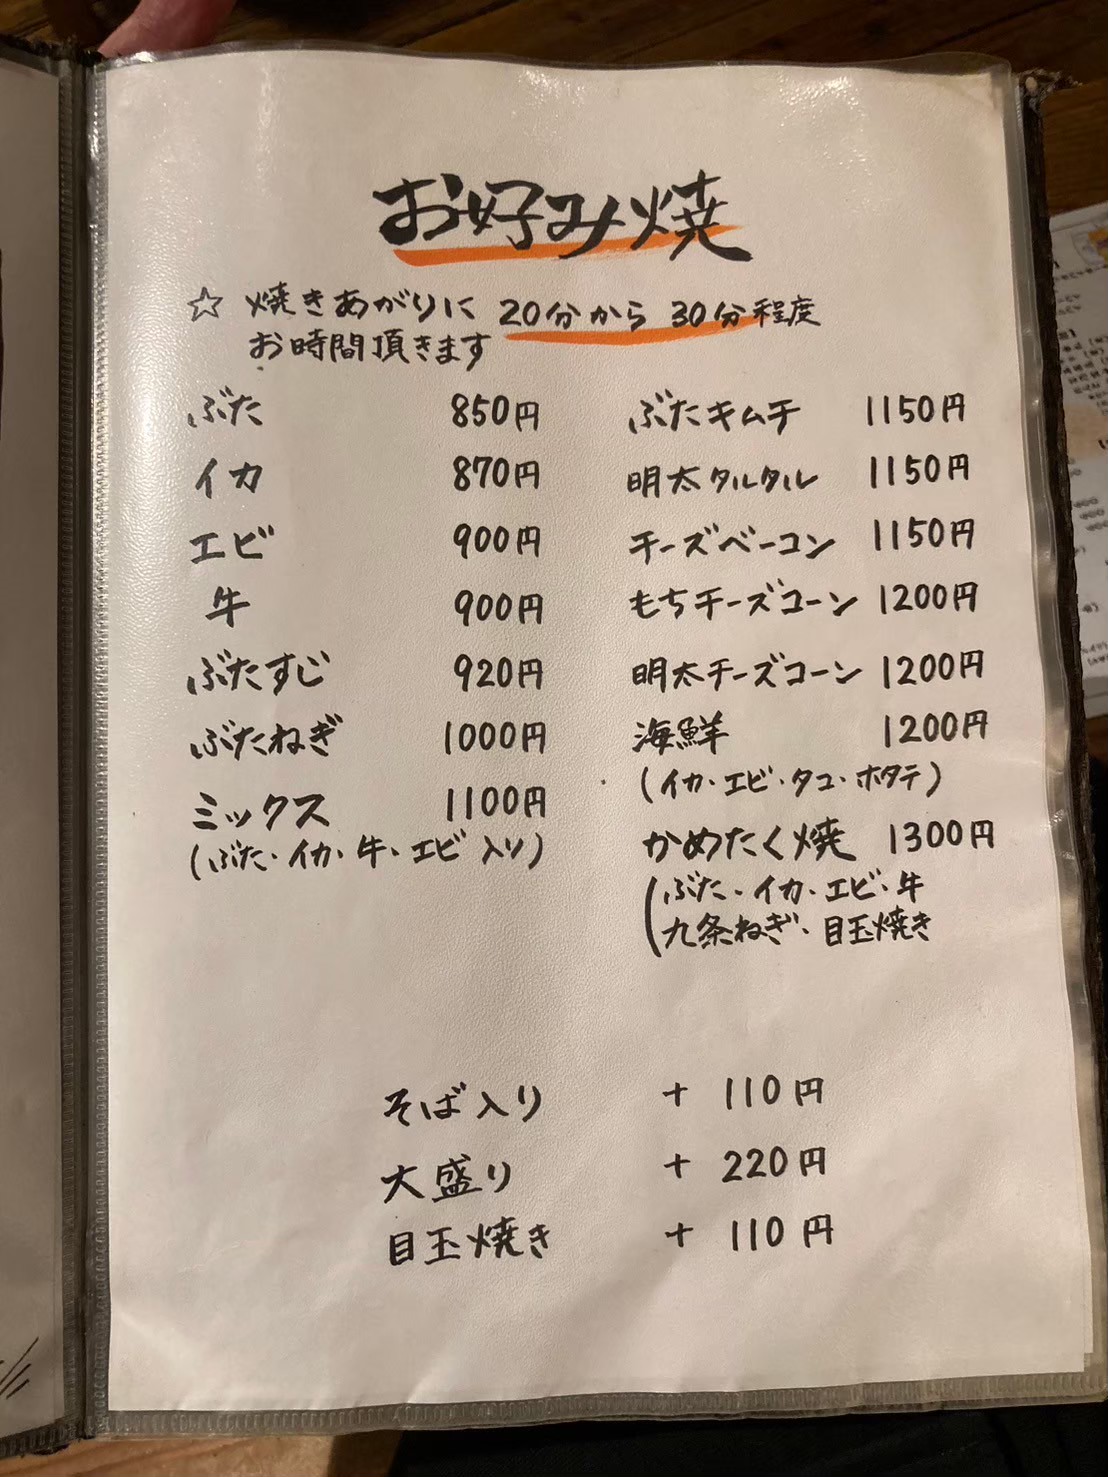 お好み焼
☆ 焼きあがりに 20分から 30分程度
お時間頂きます
ぶた 850円
イカ 870円
エビ 900円
牛 900円
ぶたすじ 920円
ぶたねぎ 1000円
ミックス 1100円
(ぶた・イカ・牛・エビ入り)
ぶたキムチ 1150円
明太タルタル 1150円
チーズベーコン 1150円
もちチーズコーン 1200円
明太チーズコーン 1200円
海鮮 1200円
(イカ・エビ・タコ・ホタテ)
かめたく焼 1300円
(ぶた・イカ・エビ・牛
九条ねぎ・目玉焼き
そば入り + 110円
大盛り + 220円
目玉焼き + 110円